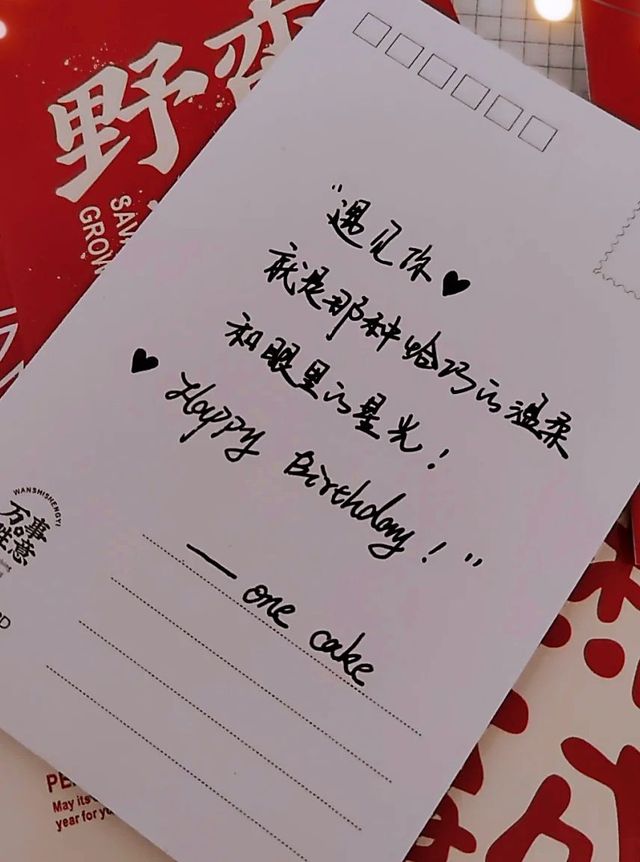 野
SAVA
GROW
"遇见你♥
就是那种恰巧的温柔
和眼里的星光!
♥ Happy Birthday!"
— one cake
WANSHISHENGYI
万事
胜意
May its
year for